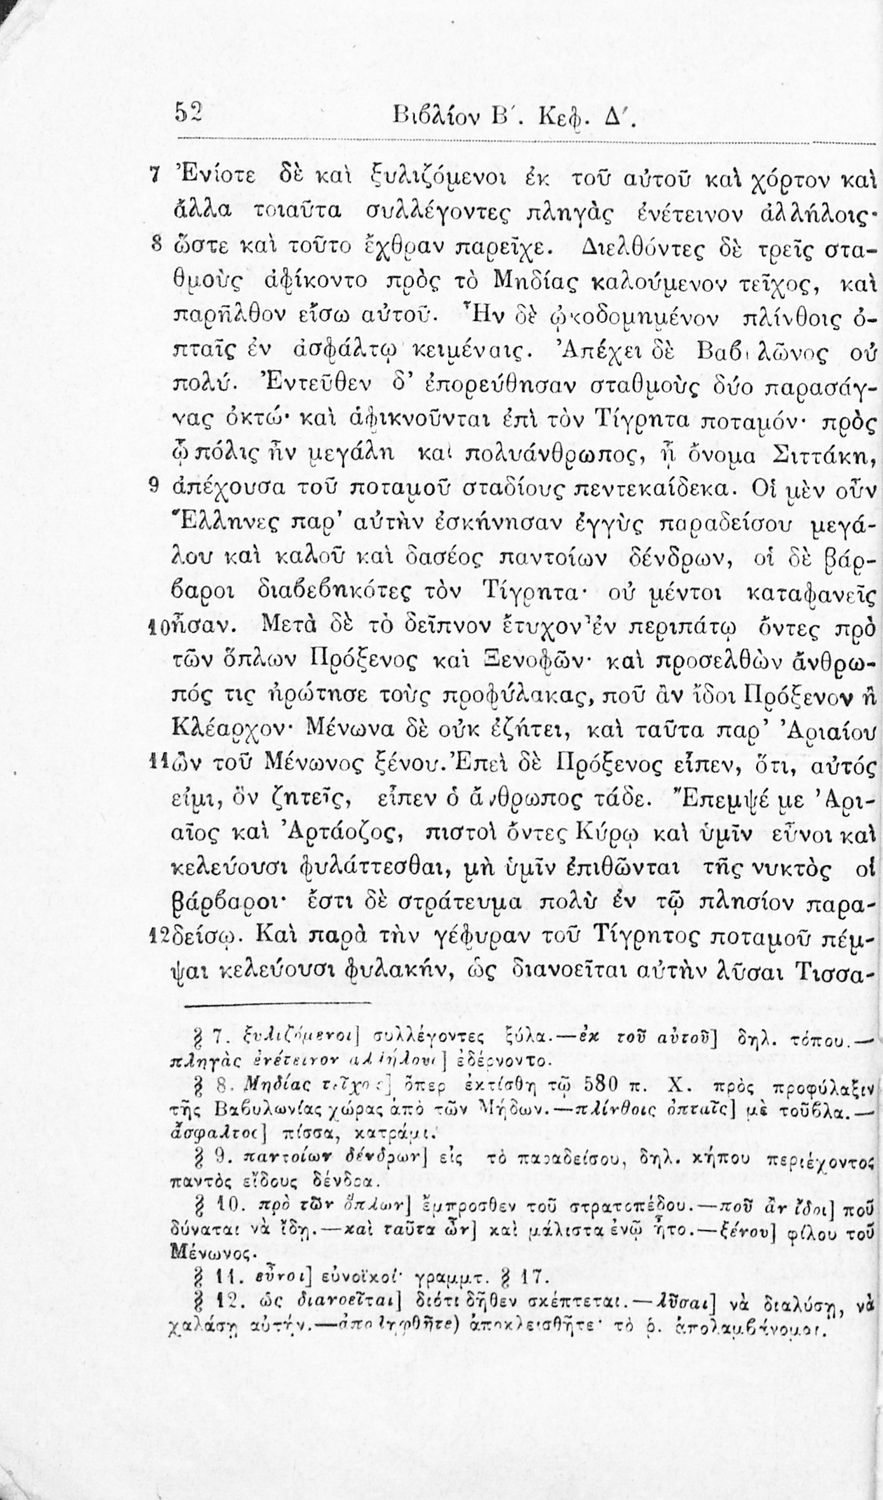 52 Βιβλίον Β΄. Κεφ. Δ΄.
7 Ἐνίοτε δὲ καὶ ξυλιζόμενοι ἐκ τοῦ αὐτοῦ καὶ χόρτον καὶ
ἄλλα τοιαῦτα συλλέγοντες πληγὰς ἐνέτεινον ἀλλήλοις·
8 ὥστε καὶ τοῦτο ἔχθραν παρεῖχε. Διελθόντες δὲ τρεῖς στα-
θμοὺς ἀφίκοντο πρὸς τὸ Μηδίας καλούμενον τεῖχος, καὶ
παρῆλθον εἴσω αὐτοῦ. Ἦν δὲ ᾠκοδομημένον πλίνθοις ὀ-
πταῖς ἐν ἀσφάλτῳ κειμέναις. Ἀπέχει δὲ Βαβυλῶνος οὐ
πολύ. Ἐντεῦθεν δ’ ἐπορεύθησαν σταθμοὺς δύο παρασάγ-
γας ὀκτώ· καὶ ἀφικνοῦνται ἐπὶ τὸν Τίγρητα ποταμόν· πρὸς
ᾧ πόλις ἦν μεγάλη καὶ πολυάνθρωπος, ᾗ ὄνομα Σιττάκη,
9 ἀπέχουσα τοῦ ποταμοῦ σταδίους πεντεκαίδεκα. Οἱ μὲν οὖν
Ἕλληνες παρ’ αὐτὴν ἐσκήνησαν ἐγγὺς παραδείσου μεγά-
λου καὶ καλοῦ καὶ δασέος παντοίων δένδρων, οἱ δὲ βάρ-
βαροι διαβεβηκότες τὸν Τίγρητα· οὐ μέντοι καταφανεῖς
10 ἦσαν. Μετὰ δὲ τὸ δεῖπνον ἔτυχον ἐν περιπάτῳ ὄντες πρὸ
τῶν ὅπλων Πρόξενος καὶ Ξενοφῶν· καὶ προσελθὼν ἄνθρω-
πός τις ἠρώτησε τοὺς προφύλακας, ποῦ ἂν ἴδοι Πρόξενον ἢ
Κλέαρχον· Μένωνα δὲ οὐκ ἐζήτει, καὶ ταῦτα παρ’ Ἀριαίου
11 ὢν τοῦ Μένωνος ξένου. Ἐπεὶ δὲ Πρόξενος εἶπεν, ὅτι, αὐτός
εἰμι, ὃν ζητεῖς, εἶπεν ὁ ἄνθρωπος τάδε. Ἔπεμψέ με Ἀρι-
αῖος καὶ Ἀρτάοζος, πιστοὶ ὄντες Κύρῳ καὶ ὑμῖν εὖνοι καὶ
κελεύουσι φυλάττεσθαι, μὴ ὑμῖν ἐπιθῶνται τῆς νυκτὸς οἱ
βάρβαροι· ἔστι δὲ στράτευμα πολὺ ἐν τῷ πλησίον παρα-
12 δείσῳ. Καὶ παρὰ τὴν γέφυραν τοῦ Τίγρητος ποταμοῦ πέμ-
ψαι κελεύουσι φυλακήν, ὡς διανοεῖται αὐτὴν λῦσαι Τισσα-
§ 7. ξυλιζόμενοι] συλλέγοντες ξύλα.—ἐκ τοῦ αὐτοῦ] δηλ. τόπου.—
πληγὰς ἐνέτεινον ἀλλήλοις] ἐδέρνοντο.
§ 8. Μηδίας τεῖχος] ὅπερ ἐκτίσθη τῷ 580 π. Χ. πρὸς προφύλαξιν
τῆς Βαβυλωνίας χώρας ἀπὸ τῶν Μήδων.—πλίνθοις ὀπταῖς] μὲ τοῦβλα.—
ἄσφαλτος] πίσσα, κατράμι.
§ 9. παντοίων δένδρων] εἰς τὸ παραδείσου, δηλ. κήπου περιέχοντος
παντὸς εἴδους δένδρα.
§ 10. πρὸ τῶν ὅπλων] ἔμπροσθεν τοῦ στρατοπέδου.—ποῦ ἂν ἴδοι] ποῦ
δύναται νὰ ἴδῃ.—καὶ ταῦτα ὢν] καὶ μάλιστα ἐνῷ ἦτο.—ξένου] φίλου τοῦ
Μένωνος.
§ 11. εὖνοι] εὐνοϊκοί· γραμμτ. § 17.
§ 12. ὡς διανοεῖται] διότι δῆθεν σκέπτεται.—λῦσαι] νὰ διαλύσῃ, νὰ
χαλάσῃ αὐτήν.—ἀποληφθῆτε) ἀποκλεισθῆτε· τὸ ῥ. ἀπολαμβάνομαι.